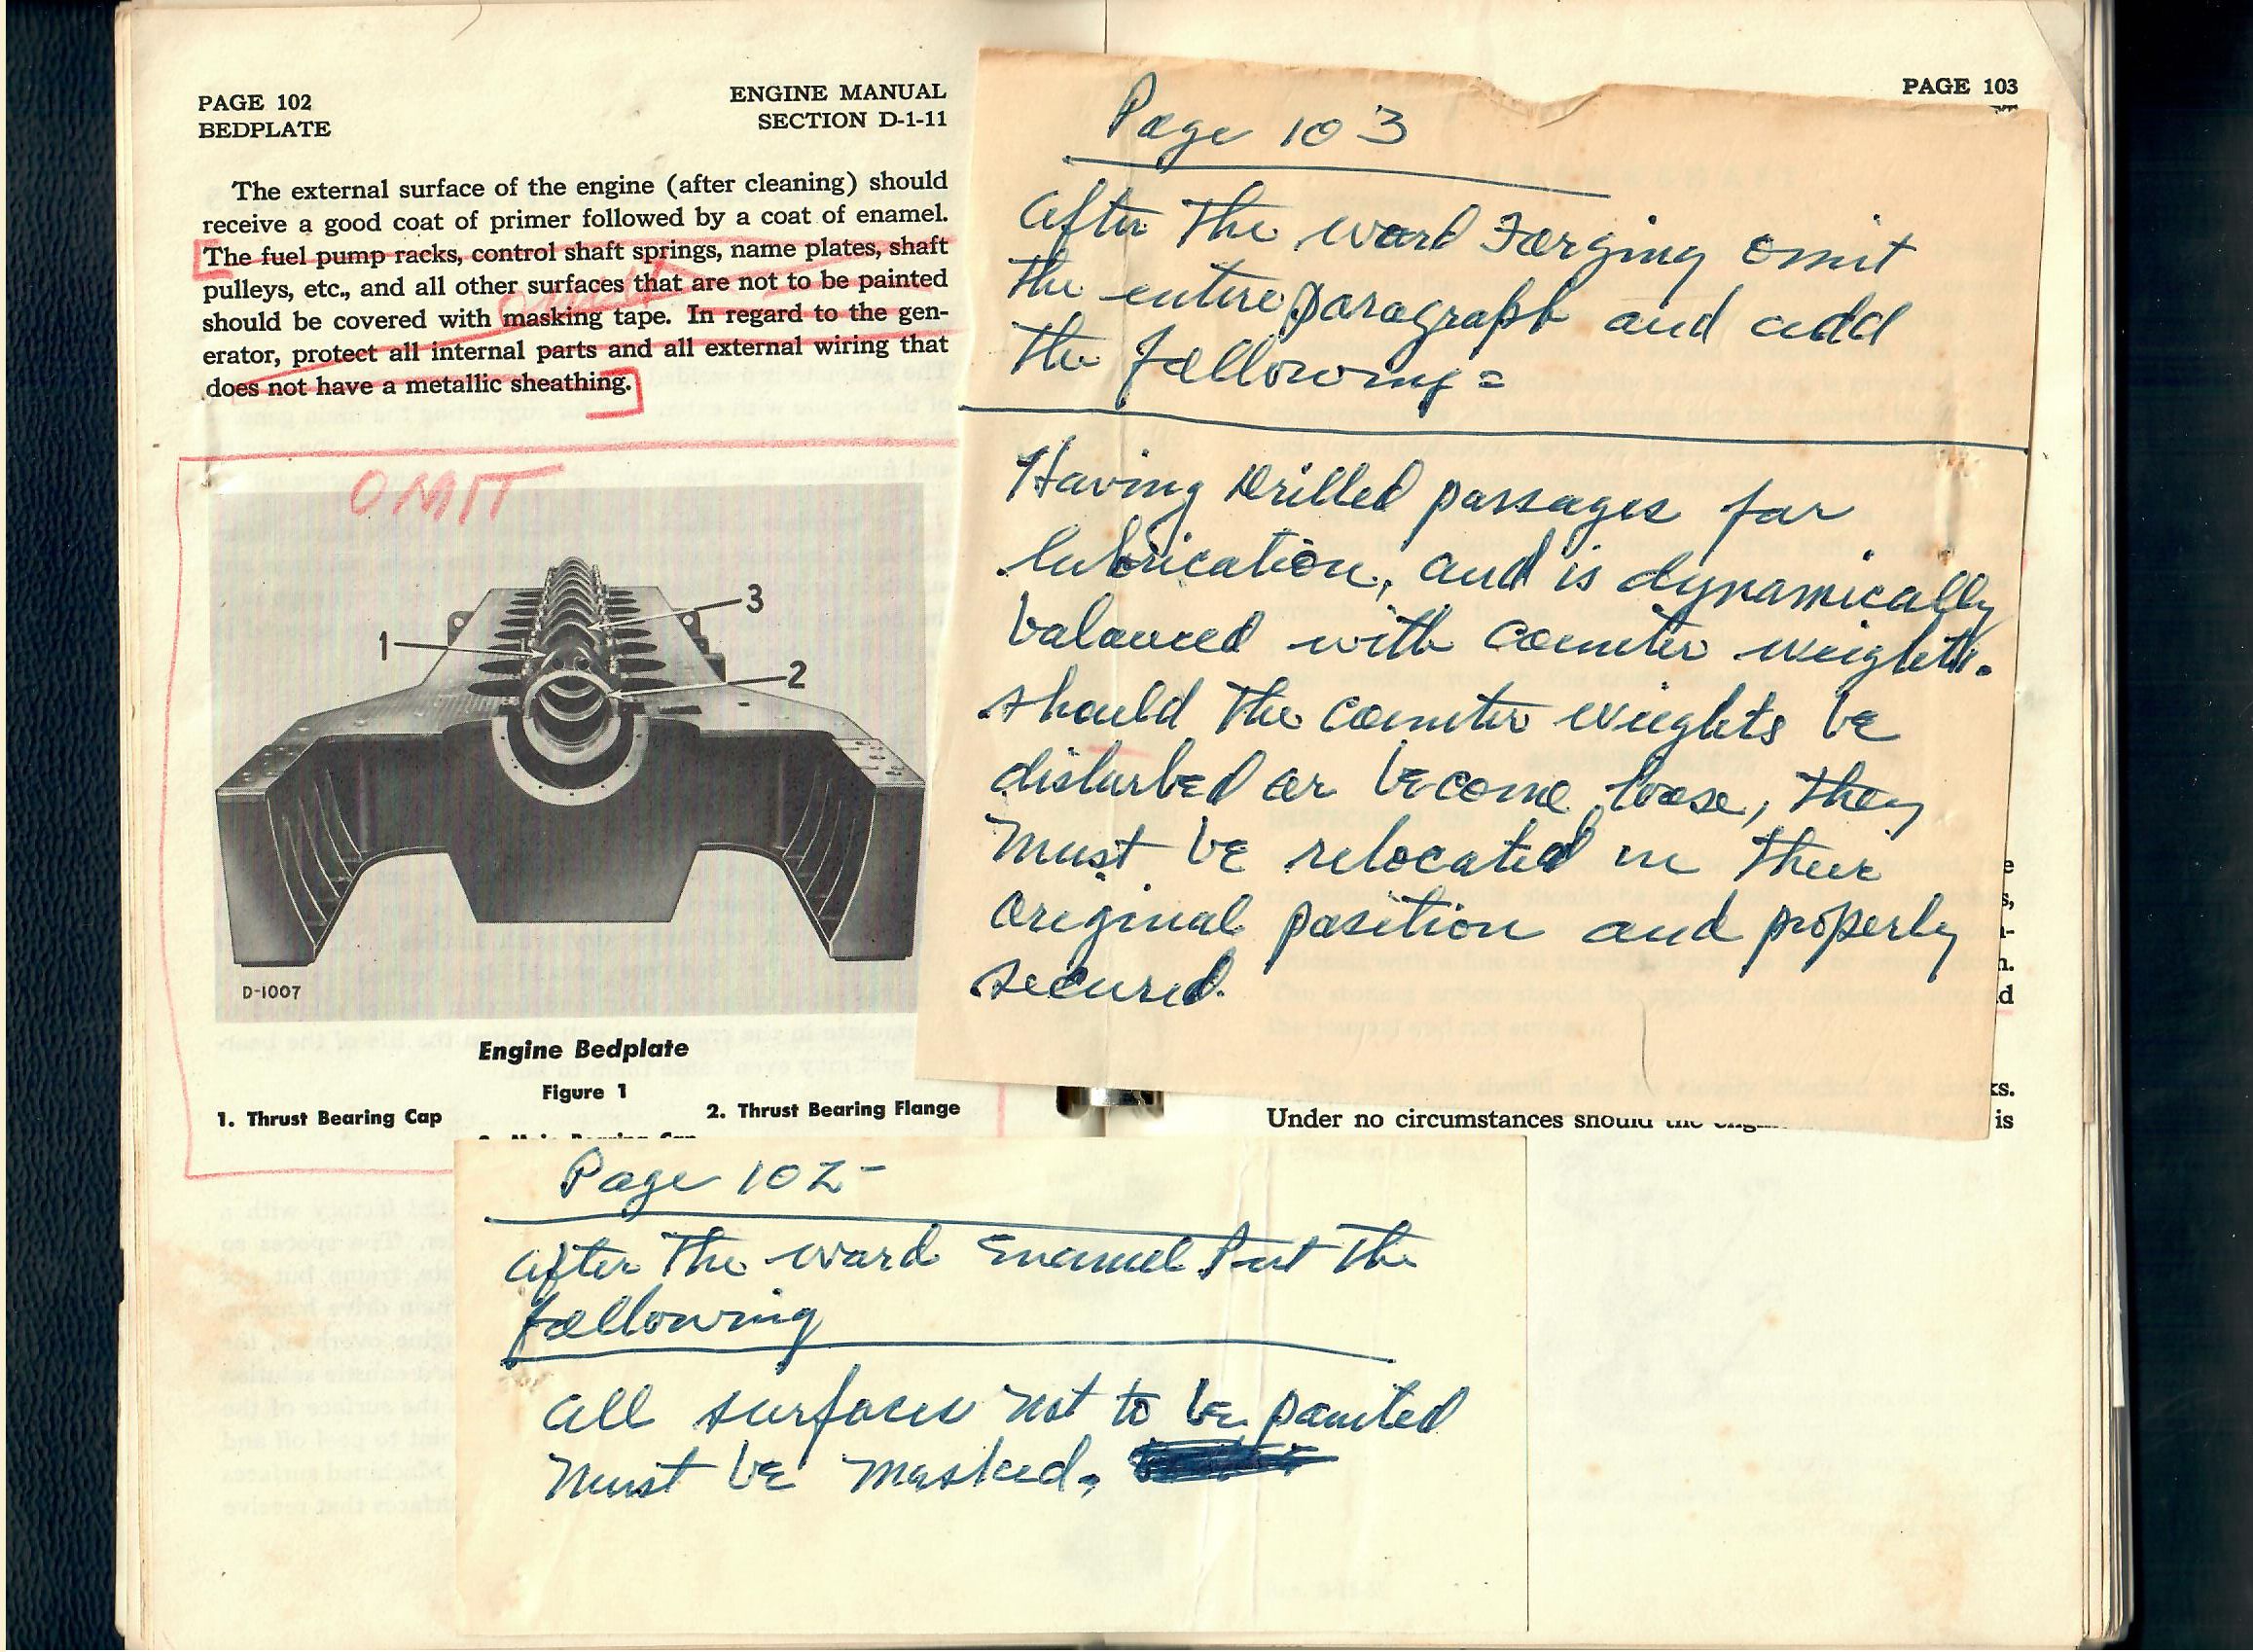 PAGE 102
BEDPLATE
ENGINE MANUAL
SECTION D-1-11
The external surface of the engine (after cleaning) should
receive a good coat of primer followed by a coat of enamel.
The fuel pump racks, control shaft springs, name plates, shaft
pulleys, etc., and all other surfaces that are not to be painted
should be covered with masking tape. In regard to the gen-
erator, protect all internal parts and all external wiring that
does not have a metallic sheathing.
omit
OMIT
1
3
2
D-1007
Engine Bedplate
Figure 1
1. Thrust Bearing Cap
2. Thrust Bearing Flange
3. Main Bearing Cap
Page 102-
after the word Enamel Put the
following
all surfaces not to be painted
must be masked.
PAGE 103
Page 103
after the word Forging omit
the entire paragraph and add
the following =
Having drilled passages for
lubrication, and is dynamically
balanced with counter weights.
should the counter weights be
disturbed or become loose, they
must be relocated in their
original position and properly
secured.
e
s,
n.
d
ks.
Under no circumstances should the
is